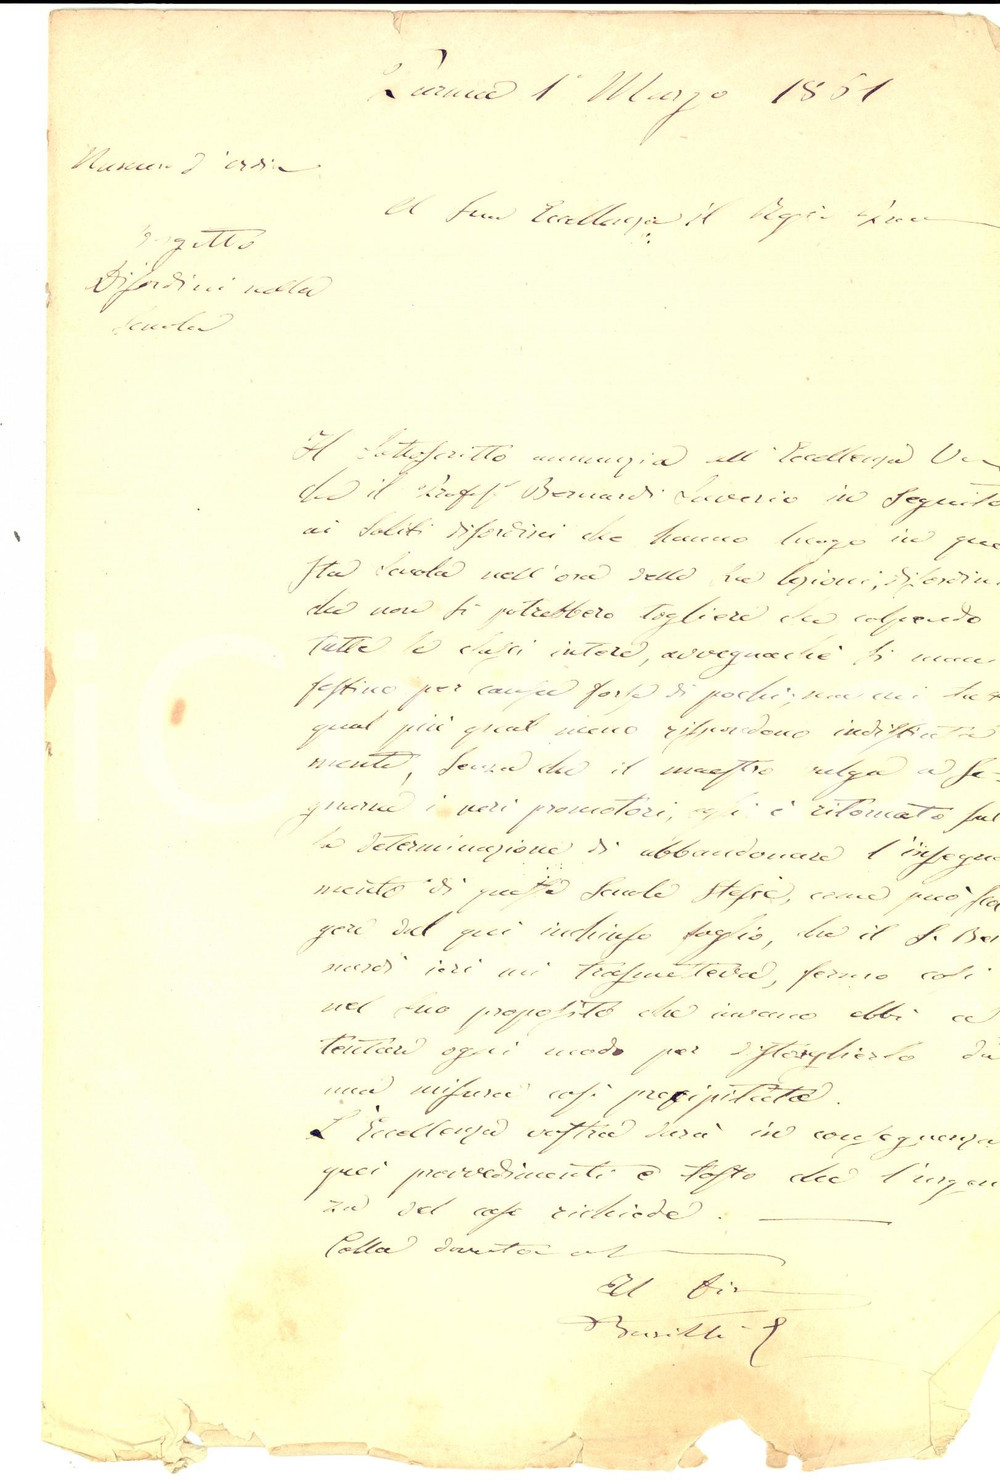 Parma 1° Marzo 1861
Numero d'ordin
A Sua Eccellenza il Regio
Oggetto
Disordini nella
Scuola
Il Sottoscritto annunzia all'Eccellenza V
che il Profess. Bernardi Saverio in seguito
ai soliti disordini che hanno luogo in que
sta Scuola nell'ora delle sue lezioni, disordini
che non si potrebbero togliere che colpendo
tutte le classi intere, avvegnaché si mani
festino per causa forse di pochi; ma cui tutti
qual più qual meno rispondono indistinta
mente, senza che il maestro valga a se-
gnarne i veri promotori, egli è ritornato sul
la determinazione di abbandonare l'insegna
mento di questa Scuola stessa, come può scor
gere dal qui inchiuso foglio, che il S. Ber
nardi ieri mi trasmetteva, fermo così
nel suo proposito che invano ebbi a
tentare ogni modo per distoglierlo da
una misura così precipitata.
L'Eccellenza vostra darà in conseguenza
quei provvedimenti e tosto che l'urgen
za del caso richiede.
Colla dovuta
Il Dir